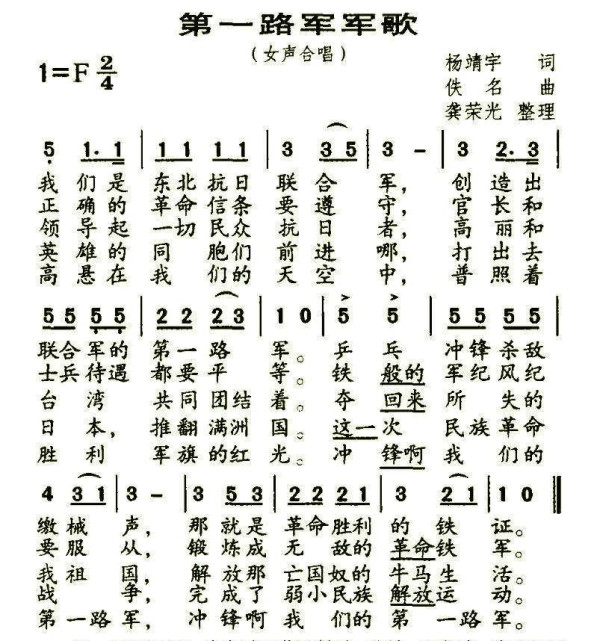 第一路军军歌
（女声合唱）
1=F 2/4
杨靖宇 词
佚名 曲
龚荣光 整理
5 1. 1 | 1 1 1 1 | 3 3 5 | 3 - | 3 2. 3 |
我们是 东北抗日 联合 军， 创造出
正确的 革命信条 要遵 守， 官长和
领导起 一切民众 抗日 者， 高丽和
英雄的 同胞们 前进 哪， 打出去
高悬在 我们的 天空 中， 普照着
5 5 5 5 | 2 2 2 3 | 1 0 | 5 5 | 5 5 5 5 |
联合军的 第一路 军。 乒乓 冲锋杀敌
士兵待遇 都要平 等。 铁般的 军纪风纪
台湾 共同团结 着。 夺回来 所失的
日本， 推翻满洲 国。 这一次 民族革命
胜利 军旗的红 光。 冲锋啊 我们的
4 3 1 | 3 - | 3 5 3 | 2 2 2 1 | 3 2 1 | 1 0 ‖
缴械 声， 那就是 革命胜利 的铁 证。
要服 从， 锻炼成 无敌的 革命铁 军。
我祖 国， 解放那 亡国奴的 牛马生 活。
战 争， 完成了 弱小民族 解放运 动。
第一路 军， 冲锋啊 我们的 第一路 军。